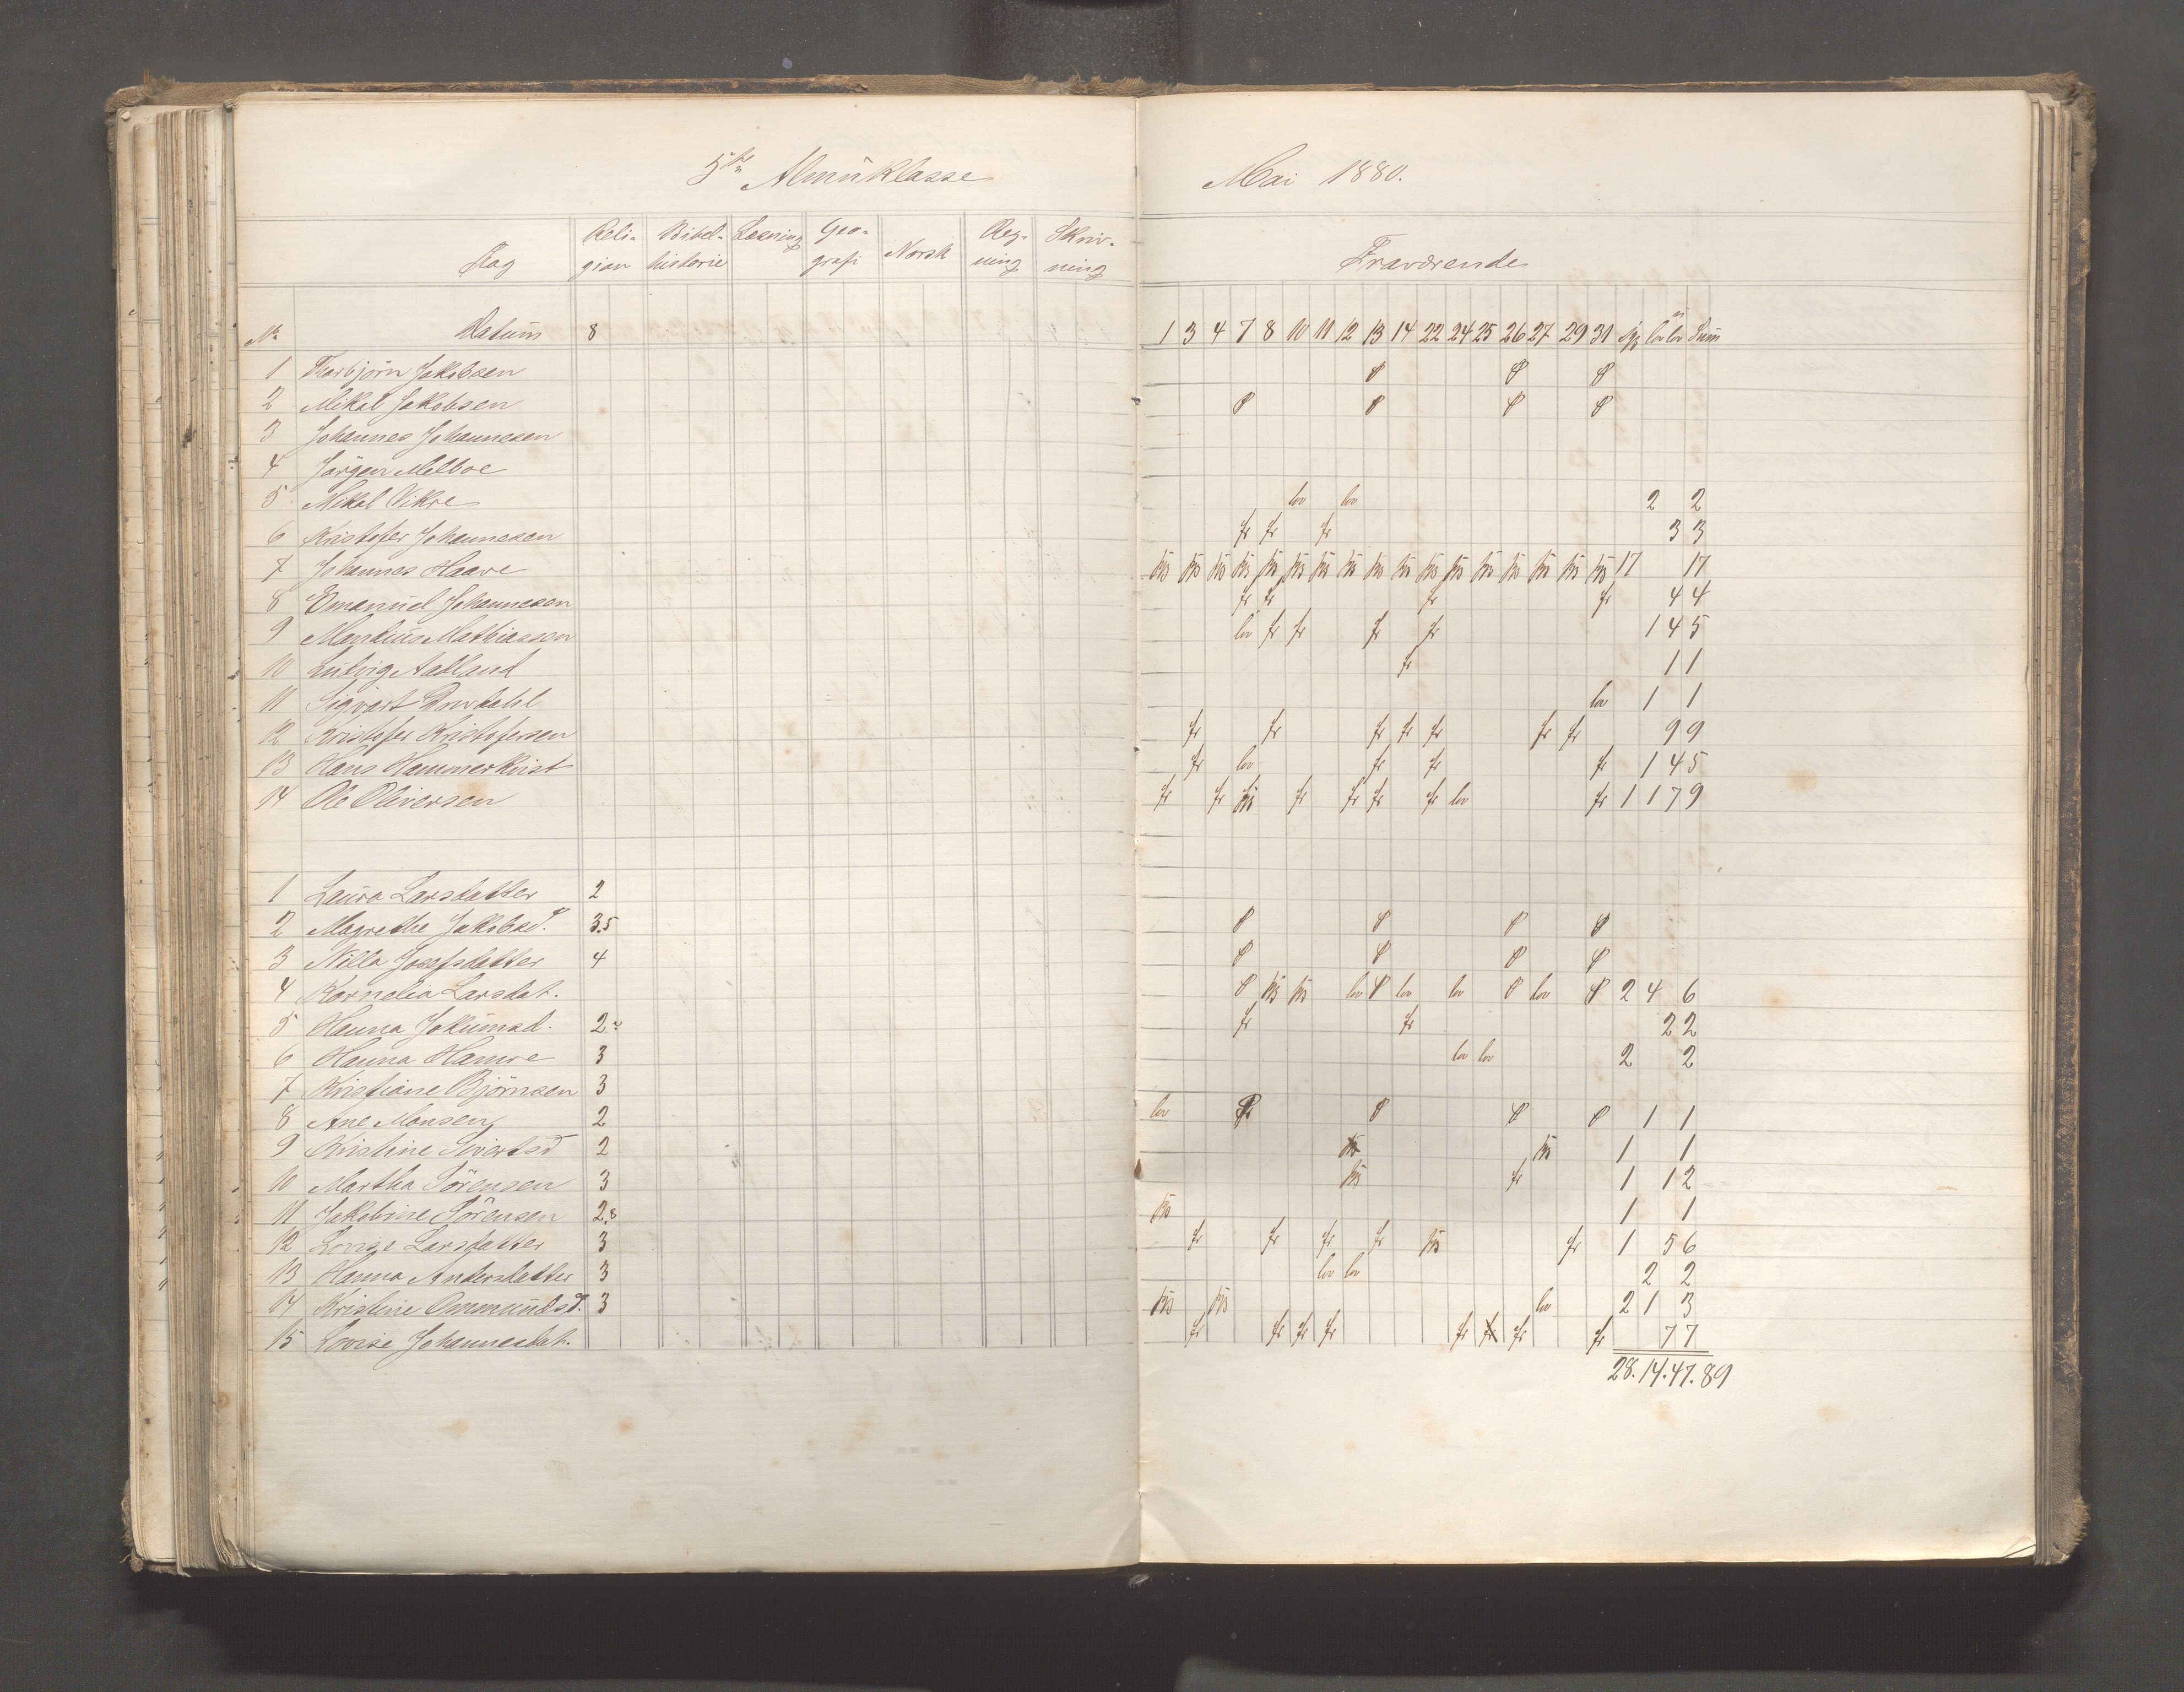 5te Almuklasse
Mai 1880.
Fag Religion Bibelhistorie Læsning Geografi Norsk Regning Skrivning
Fraværende
No Datum 8
1 3 4 7 8 10 11 12 13 14 22 24 25 26 27 29 31 syg lov ulov Sum
1 Thorbjörn Jakobsen P P P
2 Mikal Jakobsen P P P P
3 Johannes Johannesen
4 Jörgen Melboe
5 Mikal Vikre lov lov 2 2
6 Kristofer Johannesen fr fr fr 3 3
7 Johannes Haave 17 17
8 Emanuel Johannesen fr fr fr fr 4 4
9 Mathias Mathiassen lov fr fr fr fr 1 4 5
10 Ludvig Aadland fr 1 1
11 Sigvart lov 1 1
12 Kristofer Kristofersen fr fr fr fr fr fr fr 9 9
13 Hans Hammerkvist fr lov fr fr fr 1 4 5
14 Ole Oliversen fr fr fr fr fr fr lov fr 1 1 7 9
1 Laura Larsdatter 2
2 Magrethe Jakobsd. 3.5 P P P P
3 Nilla Josefsdatter 4 P P P P
4 Kornelia Larsdat. P lov P lov lov P lov P 2 4 6
5 Hanna Jokumsd. 2 fr fr 2 2
6 Hanna Hamre 3 lov lov 2 2
7 Kristiane Björnsen 3
8 Ane Monsen 2 lov P P P P 1 1
9 Kristine Sivertsd 2 1 1
10 Martha Sörensen 3 fr 1 1 2
11 Jakobine Sörensen 2.8 1 1
12 Lovise Larsdatter 3 fr fr fr fr fr 1 5 6
13 Hanna Andersdatter 3 lov lov 2 2
14 Kristine Ommundsd. 3 lov 2 1 3
15 Lovise Johannesdat. fr fr fr fr fr fr fr fr 7 7
28. 14. 47. 89